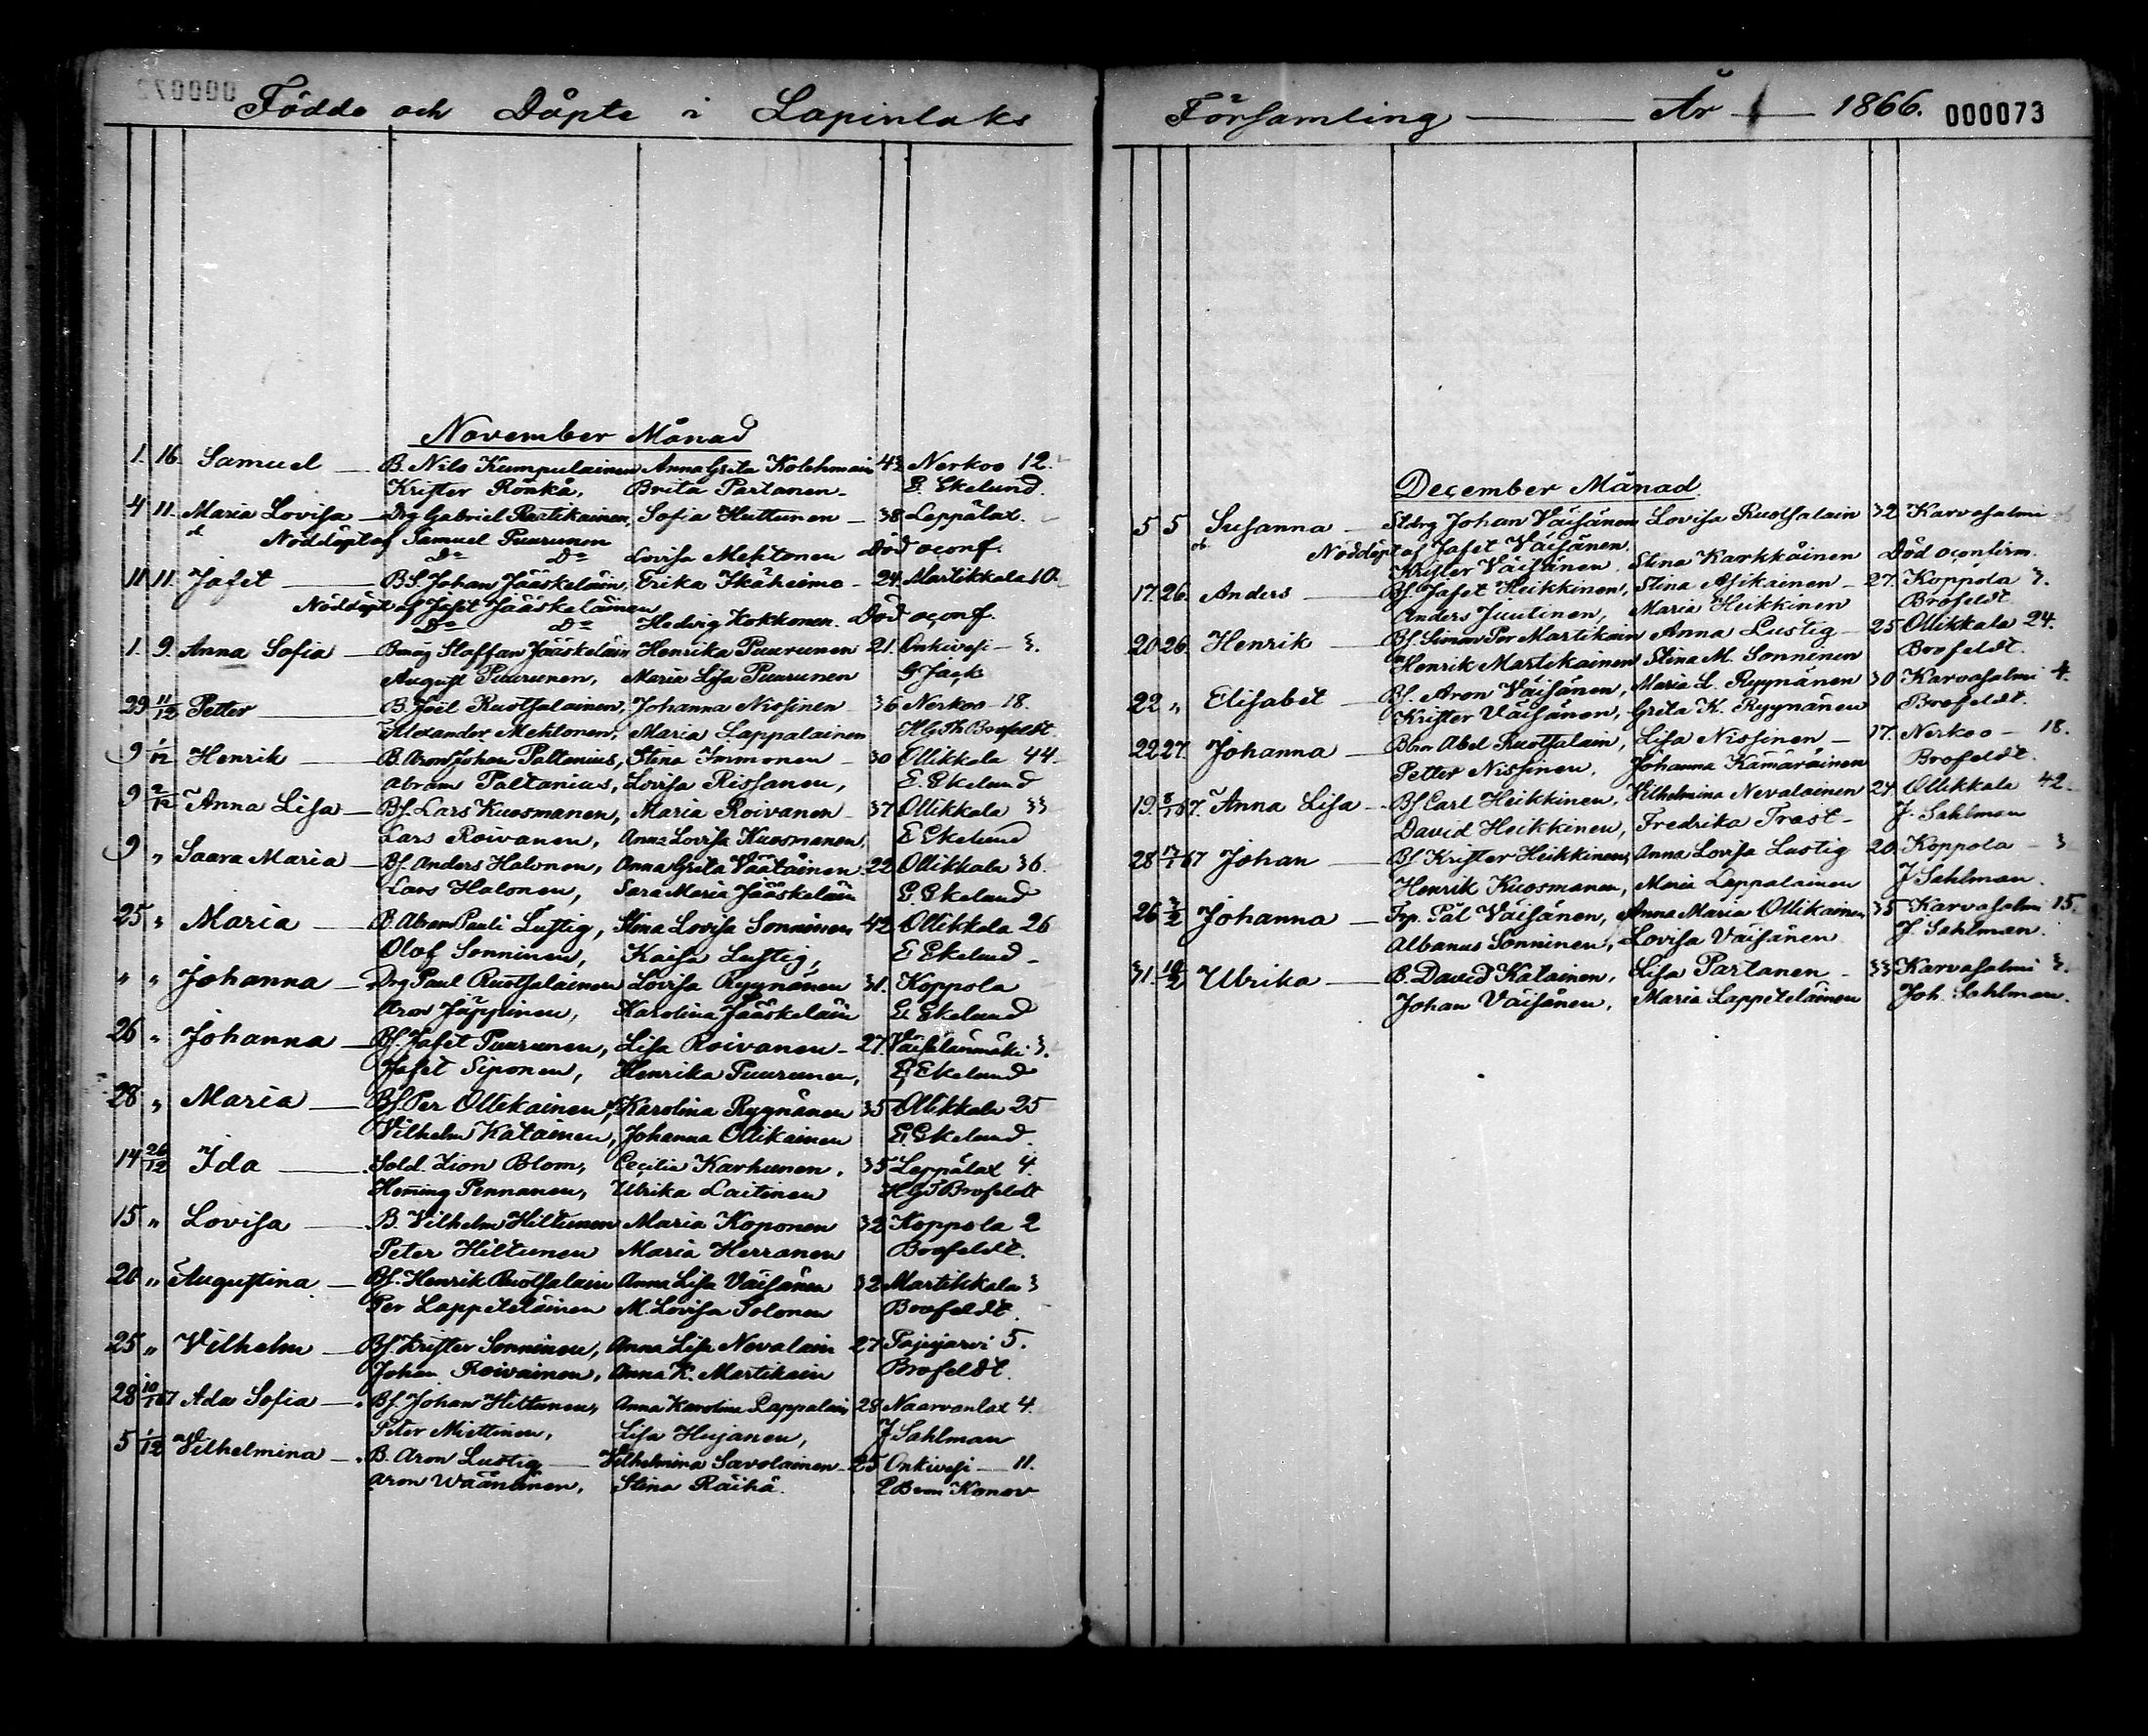 Födde och Döpte i Lapinlaks
November Månad
1. 16. Samuel — B. Nils Kumpulainen Anna Greta Kolehmain 43 Nerkoo 12.
Krister Rönkä, Brita Partanen — E. Ekelund.
4 11. Maria Lovisa — Drg Gabriel Partikainen, Sofia Huttunen — 38 Leppälax.
Nöddöpt af Samuel Puurunen
Do Do Lovisa Mehtonen Död oconf.
11 11. Jafet — BS. Johan Jääskeläin, Erika Ikäheimo — 24. Martikkala 10.
Nöddöpt af Jafet Jääskeläinen
Do Do Hedvig Kokkonen. Död oconf.
1. 9. Anna Sofia — Bmåg Staffan Jääskeläin Henrika Puurunen 21. Onkivesi — 3.
August Puurunen, Maria Lisa Puurunen G Jack
29 11/12 Petter — B. Joël Ruotsalainen, Johanna Nissinen 36 Nerkoo 18.
Alexander Mehtonen, Maria Lappalainen H G Th Brofeldt.
9 1/12 Henrik — B. Aron Johan Paltanius, Stina Immonen — 30 Ollikkala 44.
Abram Paltanius, Lovisa Rissanen, E. Ekelund
9 2/12 Anna Lisa — Bf. Lars Kuosmanen, Maria Roivanen — 37 Ollikkala 33
Lars Roivanen, Anna Lovisa Kuosmanen, E Ekelund
9 " Saara Maria — Bf. Anders Halonen, Anna Greta Väätäinen 22 Ollikkala 36.
Lars Halonen, Sara Maria Jääskeläin E. Ekelund
25 " Maria — B. Abram Pauli Lustig, Stina Lovisa Sonninen 42 Ollikkala 26
Olof Sonninen, Kaisa Lustig, E Ekelund —
" " Johanna — Drg Paul Ruotsalainen Lovisa Ryynänen 31. Koppola
Aron Jäppinen, Karolina Jääskeläin E. Ekelund
26 " Johanna — Bf. Jafet Puurunen, Lisa Roivanen — 27. Väisälänmäki 3.
Jafet Siponen, Henrika Puurunen, E. Ekelund
28 " Maria — Bf. Per Ollikainen, Karolina Ryynänen 35 Ollikkala 25
Vilhelm Katainen, Johanna Ollikainen E. Ekelund.
14 26/12 Ida — Sold. Zion Blom, Cecilia Karhunen, 35 Leppälax 4.
Hemming Pennanen, Ulrika Laitinen H G T Brofeldt
15 " Lovisa — B. Vilhelm Hiltunen Maria Koponen 32 Koppola 2
Peter Hiltunen Maria Herranen Brofeldt.
20 " Augustina — Bf. Henrik Ruotsalain Anna Lisa Väisänen 32 Martikkala 3
Per Lappeteläinen M. Lovisa Tolonen Brofeldt.
25 " Vilhelm — Bf. Krister Sonninen, Anna Lisa Nevalain 27 Pajujärvi 5.
Johan Roivainen, Anna K. Martikain Brofeldt.
28 10/1 67 Ada Sofia — Bf. Johan Hiltunen, Anna Karolina Lappalain 28 Naarvanlax 4.
Peter Miettinen, Lisa Hujanen, J Sahlman
5 1/12 Vilhelmina — B. Aron Lustig — Vilhelmina Savolainen — 25 Onkivesi — 11.
Aron Väänänen, Stina Räihä.
Församling — År — 1866. 000073
December Månad
5 5 Susanna — Johan Väisänen Lovisa Ruotsalain 32 Karvasalmi
Nöddöpt af Jafet Väisänen.
Krister Väisänen. Stina Karkkäinen Död oconfirm.
17. 26. Anders — Bf. Jafet Heikkinen, Stina Asikainen — 27. Koppola 3.
Anders Juutinen, Maria Heikkinen Brofeldt.
20 26. Henrik — Bf. Simon Per Martikain Anna Lustig — 25 Ollikkala 24.
Henrik Martikainen Stina M. Sonninen Brofeldt.
22 " Elisabet — Bf. Aron Väisänen, Maria L. Ryynänen 30 Karvasalmi 4.
Krister Väisänen, Greta K. Ryynänen Brofeldt.
22 27. Johanna — Bbr Abel Ruotsalain, Lisa Nissinen — 17. Nerkoo — 18.
Petter Nissinen, Johanna Kämäräinen Brofeldt.
19. 8/1 67. Anna Lisa — Bf Carl Heikkinen, Vilhelmina Nevalainen 24. Ollikkala 42.
David Heikkinen, Fredrika Trast — J. Sahlman
28 17/1 67 Johan — Bf Krister Heikkinen, Anna Lovisa Lustig 20. Koppola — 3
Henrik Kuosmanen, Maria Lappalainen J Sahlman.
26 2/2 Johanna — Trp. Pål Väisänen, Anna Maria Ollikainen 35 Karvasalmi 15.
Albanus Sonninen, Lovisa Väisänen J. Sahlman.
31. 10/2 Ulrika — B. David Katainen, Lisa Partanen — 33 Karvasalmi 3.
Johan Väisänen, Maria Lappeteläinen Joh. Sahlman.